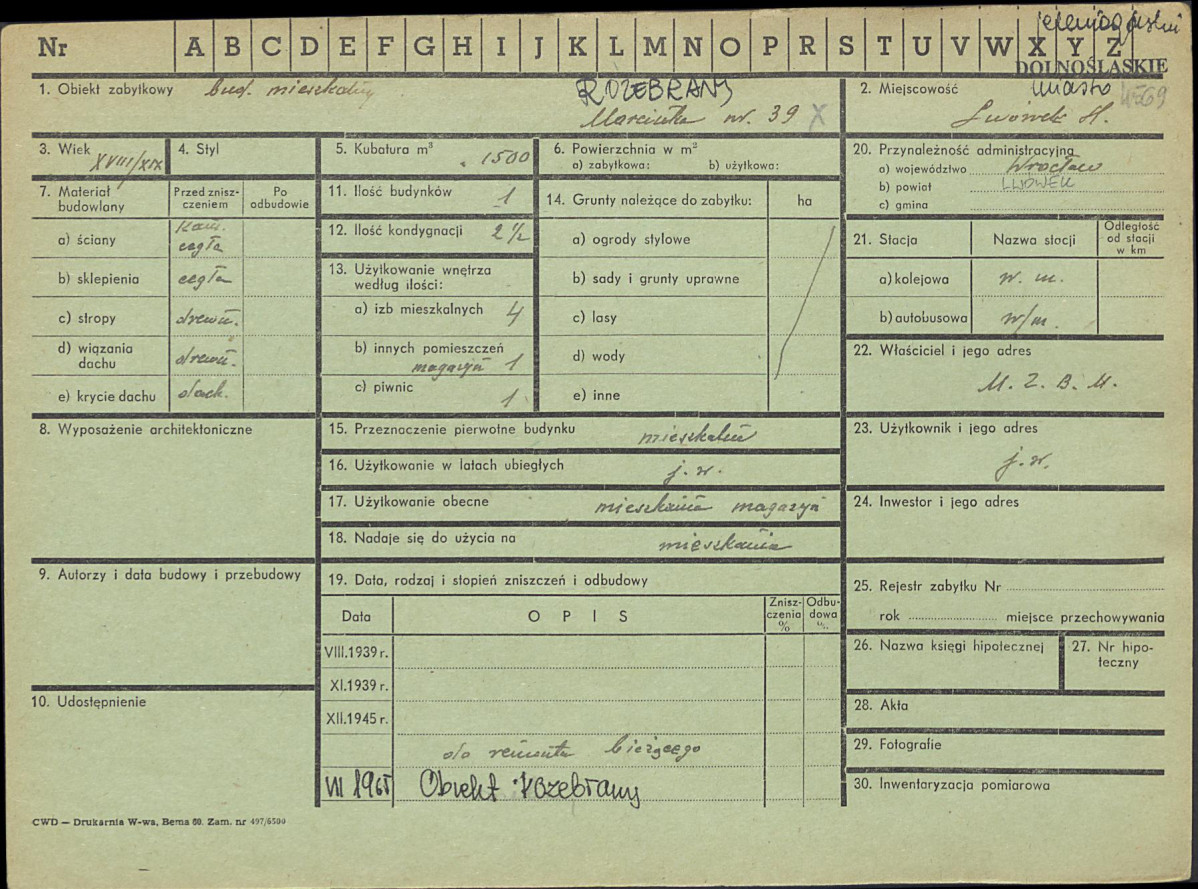 jeleniogórski
Nr A B C D E F G H I J K L M N O P R S T U V W X Y Z
DOLNOŚLĄSKIE
1. Obiekt zabytkowy bud. mieszkalny ROZEBRANY
Marcinka nr. 39 X
2. Miejscowość miasto 4569
Lwówek Śl.
3. Wiek XVIII/XIX
4. Styl
5. Kubatura m³ 1500
6. Powierzchnia w m²
a) zabytkowa: b) użytkowa:
7. Materiał budowlany
Przed znisz-
czeniem
Po
odbudowie
a) ściany kam.
cegła
b) sklepienia cegła
c) stropy drewn.
d) wiązania
dachu drewn.
e) krycie dachu dach.
8. Wyposażenie architektoniczne
9. Autorzy i data budowy i przebudowy
10. Udostępnienie
11. Ilość budynków 1
12. Ilość kondygnacji 2 ½
13. Użytkowanie wnętrza
według ilości:
a) izb mieszkalnych 4
b) innych pomieszczeń
magazyn 1
c) piwnic 1
14. Grunty należące do zabytku: ha
a) ogrody stylowe
b) sady i grunty uprawne
c) lasy
d) wody
e) inne
15. Przeznaczenie pierwotne budynku mieszkalne
16. Użytkowanie w latach ubiegłych j. w.
17. Użytkowanie obecne mieszkania magazyn
18. Nadaje się do użycia na mieszkania
19. Data, rodzaj i stopień zniszczeń i odbudowy
Data OPIS
Znisz-
czenia
%
Odbu-
dowa
%
VIII.1939 r.
XI.1939 r.
XII.1945 r.
do remontu bieżącego
VII 1965 Obiekt rozebrany
20. Przynależność administracyjna
a) województwo Wrocław
b) powiat LWÓWEK
c) gmina
21. Stacja Nazwa stacji
Odległość
od stacji
w km
a) kolejowa w. m.
b) autobusowa w/m.
22. Właściciel i jego adres
M. Z. B. M.
23. Użytkownik i jego adres
j. w.
24. Inwestor i jego adres
25. Rejestr zabytku Nr
rok miejsce przechowywania
26. Nazwa księgi hipotecznej
27. Nr hipo-
teczny
28. Akta
29. Fotografie
30. Inwentaryzacja pomiarowa
CWD — Drukarnia W-wa, Bema 60. Zam. nr 497/6500